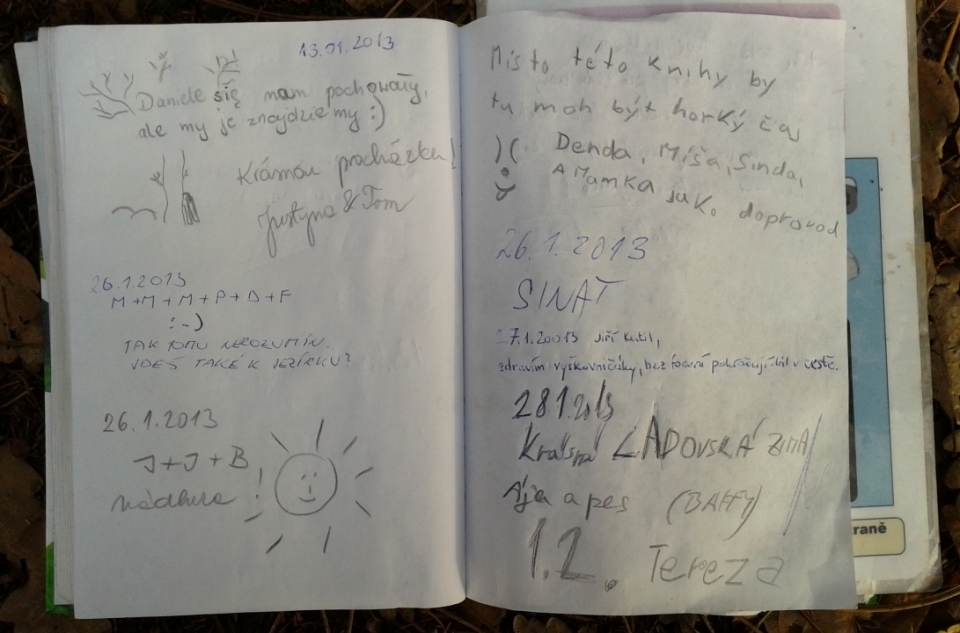 13.01.2013
Daniele się nam pochowały,
ale my je znajdziemy :)
Krásnou procházku!
Justyna & Tom
26.1.2013
M+M+M+P+D+F
:-)
TAK TOMU NEROZUMÍN.
JDEŠ TAKÉ K JEZÍRKU?
26.1.2013
J+J+B
nádhera !
Místo této knihy by
tu moh být horký čaj
Denda, Míša, Sinda,
A Mamka jak. doprovod
26.1.2013
SINAT
27.1.20013 Jiří Kutil,
zdravím výškovničáky, bez focení pokračuji v cestě.
28.1.2013
Krásná LADOVSKÁ ZIMA
Ája a pes (BAFFY)
1.2. Tereza
raně